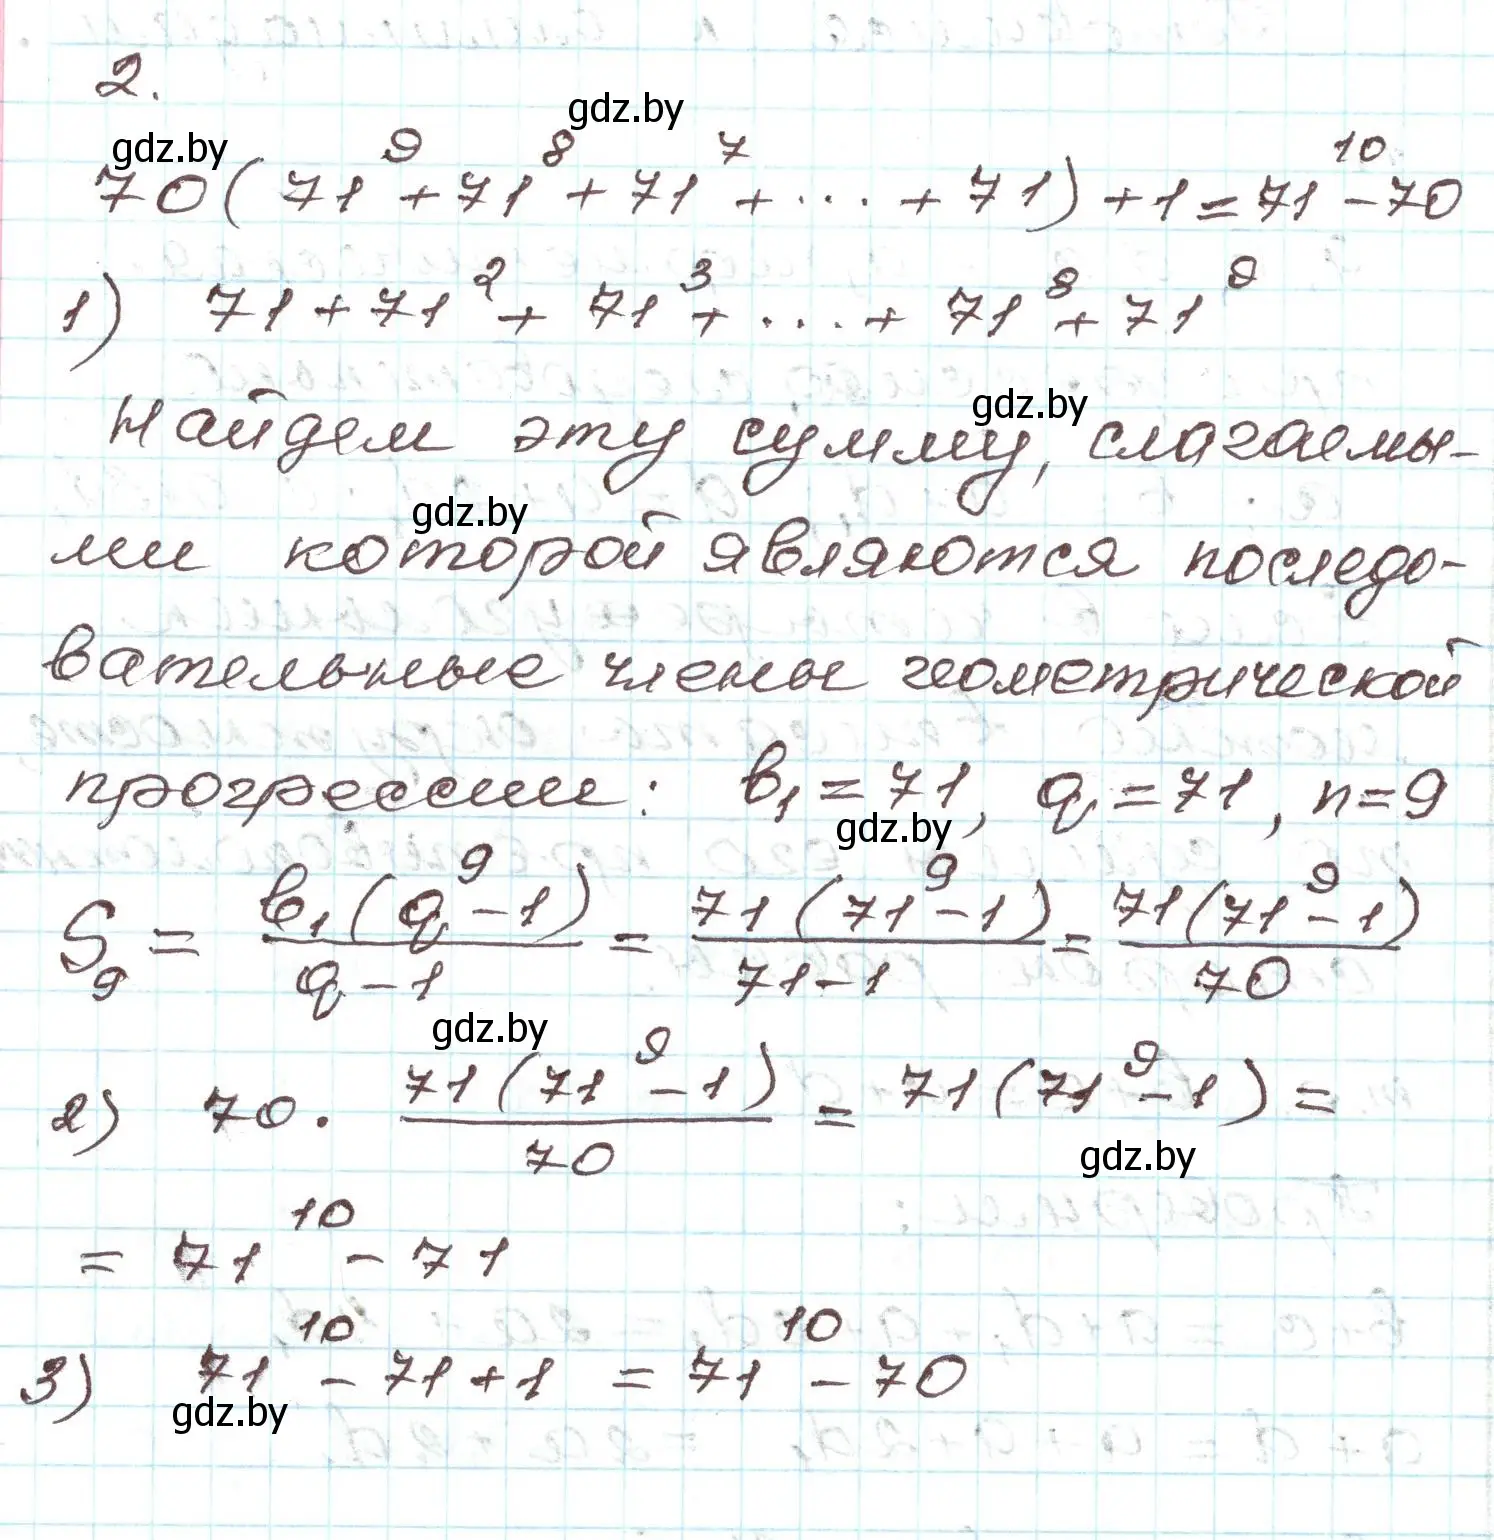 2.
gdz.by
gdz.by
70(71⁹+71⁸+71⁷+...+71)+1=71¹⁰-70
1) 71+71²+71³+...+71⁸+71⁹
gdz.by
Найдем эту сумму, слагаемы-
gdz.by
ми которой являются последо-
вательные члены геометрической
прогрессии: b₁=71, q=71, n=9
gdz.by
S₉ = b₁(q⁹-1)/(q-1) = 71(71⁹-1)/(71-1) = 71(71⁹-1)/70
gdz.by
2) 70 · 71(71⁹-1)/70 = 71(71⁹-1) =
gdz.by
= 71¹⁰ - 71
3) 71¹⁰ - 71 + 1 = 71¹⁰ - 70
gdz.by